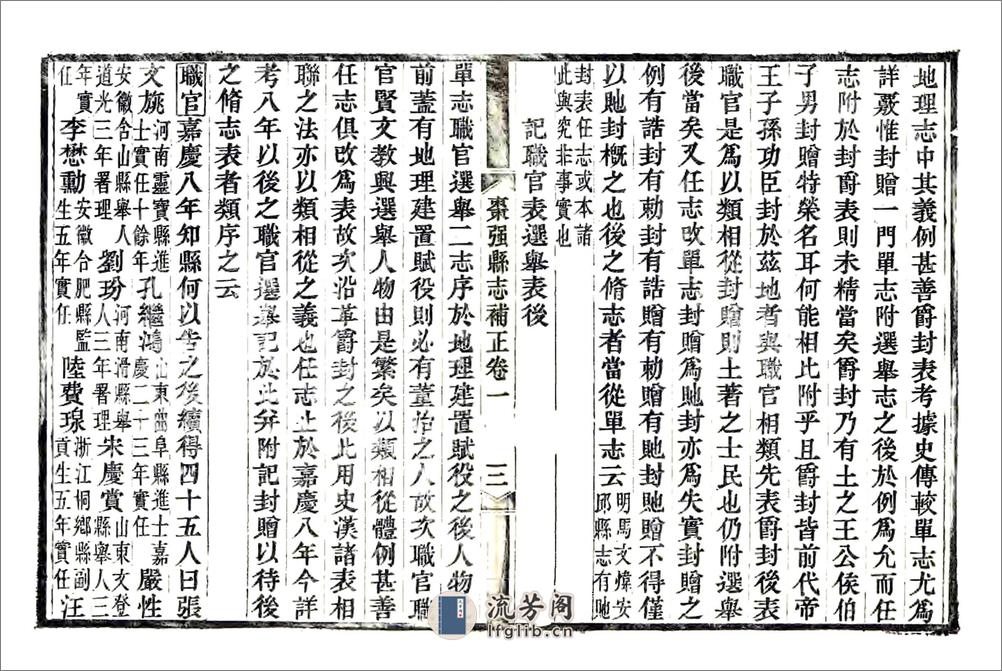 地理志中其義例甚善爵封表考據史傳較單志尤爲
詳覈惟封贈一門單志附選舉志之後於例爲允而任
志附於封爵表則未精當矣爵封乃有土之王公侯伯
子男封贈特榮名耳何能相比附乎且爵封皆前代帝
王子孫功臣封於茲地者與職官相類先表爵封後表
職官是爲以類相從封贈則土著之士民也仍附選舉
後當矣又任志改單志封贈爲貤封亦爲失實封贈之
例有誥封有勅封有誥贈有勅贈有貤封貤贈不得僅
以貤封概之也後之脩志者當從單志云
明馬文煒安
邱縣志有貤
封表任志或本諸
此與究非事實也
記職官表選舉表後
單志職官選舉二志序於地理建置賦役之後人物
前蓋有地理建置賦役則必有董治之人故次職官職
官賢文教興選舉人物由是繁矣以類相從體例甚善
任志俱改爲表故次沿革爵封之後此用史漢諸表相
聯之法亦以類相從之義也任志止於嘉慶八年今詳
考八年以後之職官選舉記於此弁附記封贈以待後
之脩志表者類序之云
職官嘉慶八年知縣何以告之後續得四十五人曰張
文旄
河南靈寶縣進
士實任十餘年
孔繼鴻
山東曲阜縣進士嘉
慶二十三年實任
嚴性
安徽含山縣舉人
道光三年署理
劉玢
河南滑縣舉
人三年署理
宋慶賞
山東文登
縣舉人三
年實
任
李懋勳
安徽合肥縣監
生五年實任
陸費瑔
浙江桐鄉縣副
貢生五年實任
汪
棗强縣志補正卷一
三
流芳阁
lfglib.cn